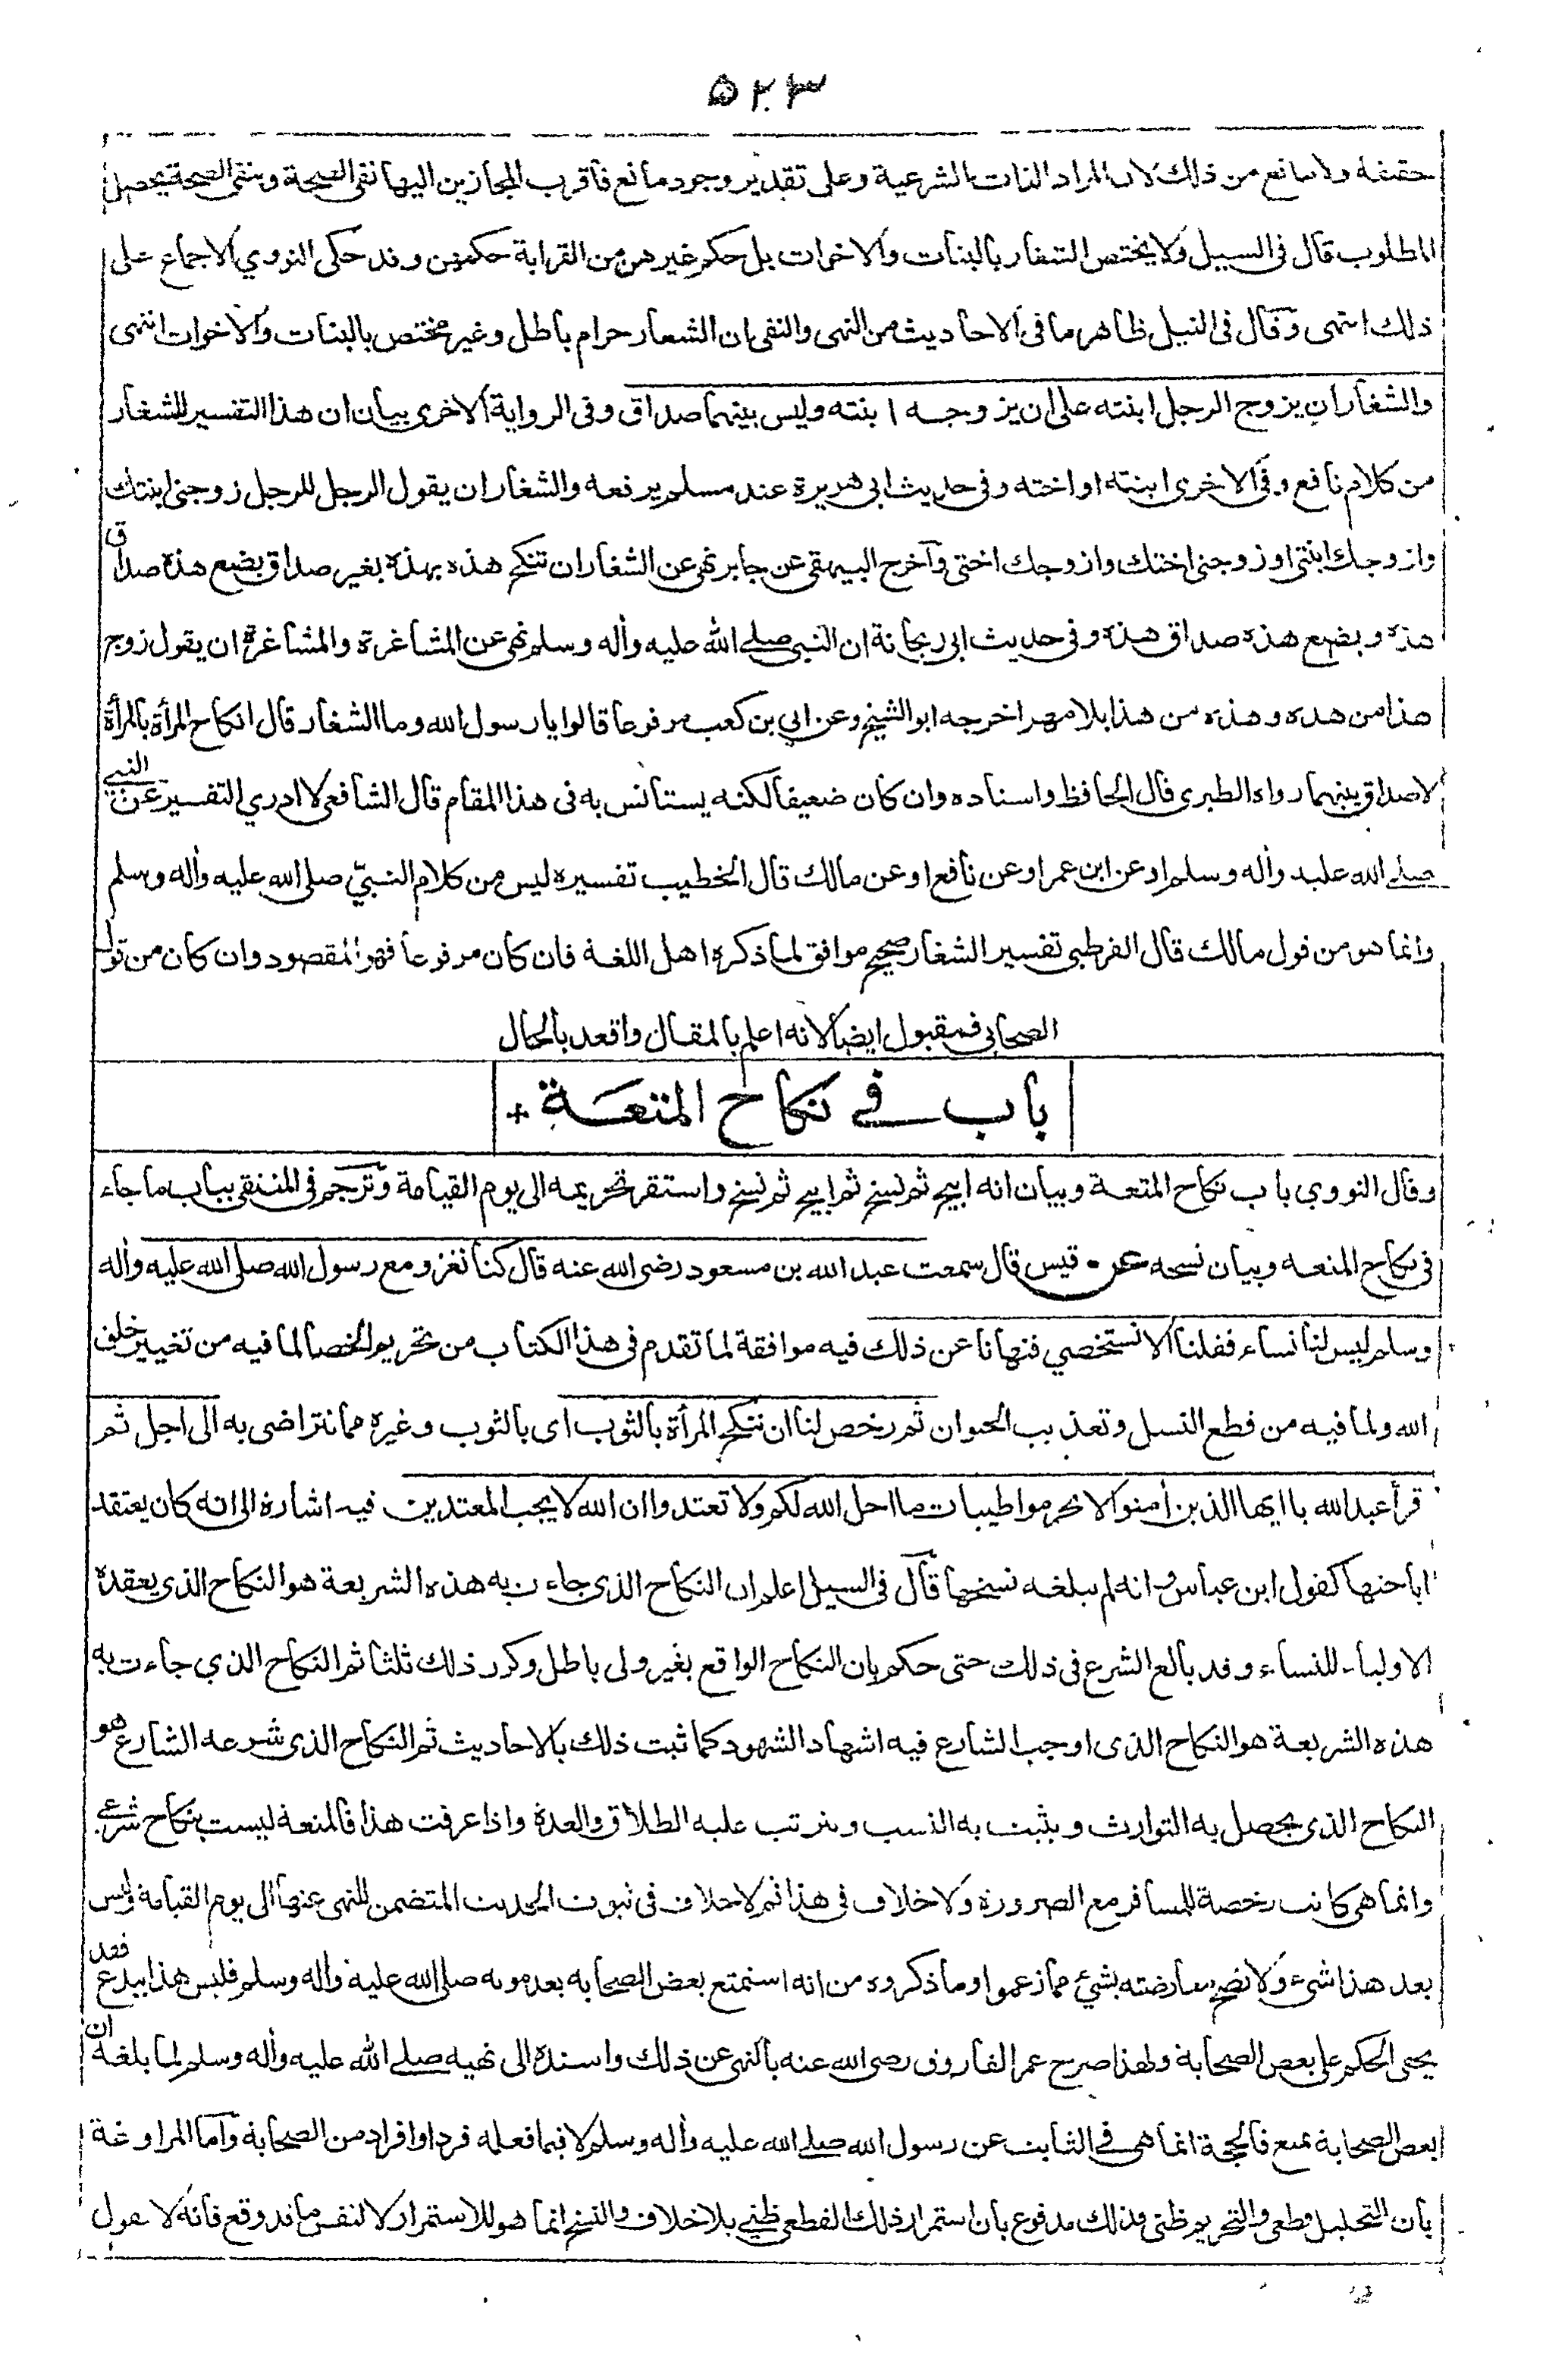 ٥٢٣
حقيقة ولا مانع من ذلك لان المراد الذات الشرعية وعلى تقدير وجود مانع فاقرب المجازين اليها نفى الصحة وبنفى الصحة يحصل
المطلوب قال فى السيل ولا يختص الشغار بالبنات والاخوات بل حكم غيرهن من القرابة حكمهن وقد حكى النووي الاجماع على
ذلك انتهى وقال فى النيل ظاهر ما فى الاحاديث من النهى والنفى ان الشغار حرام باطل وغير مختص بالبنات والاخوات انتهى
والشغار ان يزوج الرجل ابنته على ان يزوجه ابنته وليس بينهما صداق وفى الرواية الاخرى بيان ان هذا التفسير للشغار
من كلام نافع وفى الاخرى ابنته او اخته وفى حديث ابى هريرة عند مسلم يرفعه والشغار ان يقول الرجل للرجل زوجنى ابنتك
وازوجك ابنتى او زوجنى اختك وازوجك اختى وآخرج البيهقى عن جابر نهى عن الشغار ان تنكح هذه بهذه بغير صداق بضع هذه صداق
هذه وبضع هذه صداق هذه وفى حديث ابى ريحانة ان النبى صلے الله عليه وأله وسلم نهى عن المشاغرة والمشاغرة ان يقول زوج
هذا من هذه وهذه من هذا بلا مهر اخرجه ابو الشيخ وعن ابي بن كعب مرفوعا قالوا يا رسول الله وما الشغار قال انكاح المرأة بالمرأة
لا صداق بينهما رواه الطبرى قال الحافظ واسناده وان كان ضعيفا لكنه يستأنس به فى هذا المقام قال الشافعى لا ادري التفسير عن النبے
صلے الله عليه وأله وسلم او عن ابن عمر او عن نافع او عن مالك قال الخطيب تفسيره ليس من كلام النبيّ صلى الله عليه وأله وسلم
وانما هو من قول مالك قال القرطبى تفسير الشغار صحيح موافق لما ذكره اهل اللغة فان كان مرفوعا فهو المقصود وان كان من قول
الصحابى فمقبول ايضا لانه اعلم بالمقال واقعد بالحال
باب فے نكاح المتعة +
وقال النووي باب نكاح المتعة وبيان انه ابيح ثم نسخ ثم ابيح ثم نسخ واستقر تحريمه الى يوم القيامة وترجم فى المنتقى بباب ما جاء
فى نكاح المتعه وبيان نسخه عن قيس قال سمعت عبد الله بن مسعود رضى الله عنه قال كنا نغزو مع رسول الله صلى الله عليه وأله
وسلم ليس لنا نساء فقلنا ألا نستخصي فنهانا عن ذلك فيه موافقة لما تقدم فى هذا الكتاب من تحريم الخصا لما فيه من تغيير خلق
الله ولما فيه من قطع النسل وتعذيب الحيوان ثم رخص لنا ان ننكح المرأة بالثوب اى بالثوب وغيره مما نتراضى به الى اجل ثم
قرأ عبد الله يا ايها الذين أمنوا لا تحرموا طيبات ما احل الله لكم ولا تعتدوا ان الله لا يحب المعتدين فيه اشارة الى انه كان يعتقد
اباحتها كقول ابن عباس وانه لم يبلغه نسخها قال فى السيل اعلم ان النكاح الذى جاءت به هذه الشريعة هو النكاح الذى يعقده
الاولياء للنساء وقد بالغ الشرع فى ذلك حتى حكم بان النكاح الواقع بغير ولى باطل وكرر ذلك ثلثا ثم النكاح الذي جاءت به
هذه الشريعة هو النكاح الذى اوجب الشارع فيه اشهاد الشهود كما ثبت ذلك بالاحاديث ثم النكاح الذى شرعه الشارع هو
النكاح الذى يحصل به التوارث ويثبت به النسب ويترتب عليه الطلاق والعدة واذا عرفت هذا فالمتعة ليست بنكاح شرعے
وانما هى كانت رخصة للمسافر مع الضرورة ولا خلاف فى هذا ثم لا خلاف فى ثبوت الحديث المتضمن للنهى عنها الى يوم القيامة وليس
بعد هذا شىء ولا تصح معارضته بشئ مما زعموا وما ذكروه من انه استمتع بعض الصحابه بعد موته صلى الله عليه وأله وسلم فليس هذا ببدع فقد
يخفى الحكم على بعض الصحابة ولهذا صرح عمر الفاروق رضى الله عنه بالنهى عن ذلك واسنده الى نهيه صلے الله عليه وأله وسلم لما بلغه ان
بعض الصحابة تمتع فالحجة انما هى فے الثابت عن رسول الله صلے الله عليه وأله وسلم لا فيما فعله فرد او افراد من الصحابة وأما المراوغة
بأن التحليل قطعى والتحريم ظنى فذلك مدفوع بأن استمرار ذلك القطعى ظنے بلا خلاف والنسخ انما هو للاستمرار لا لنفس ما قد وقع فانه لا يقول